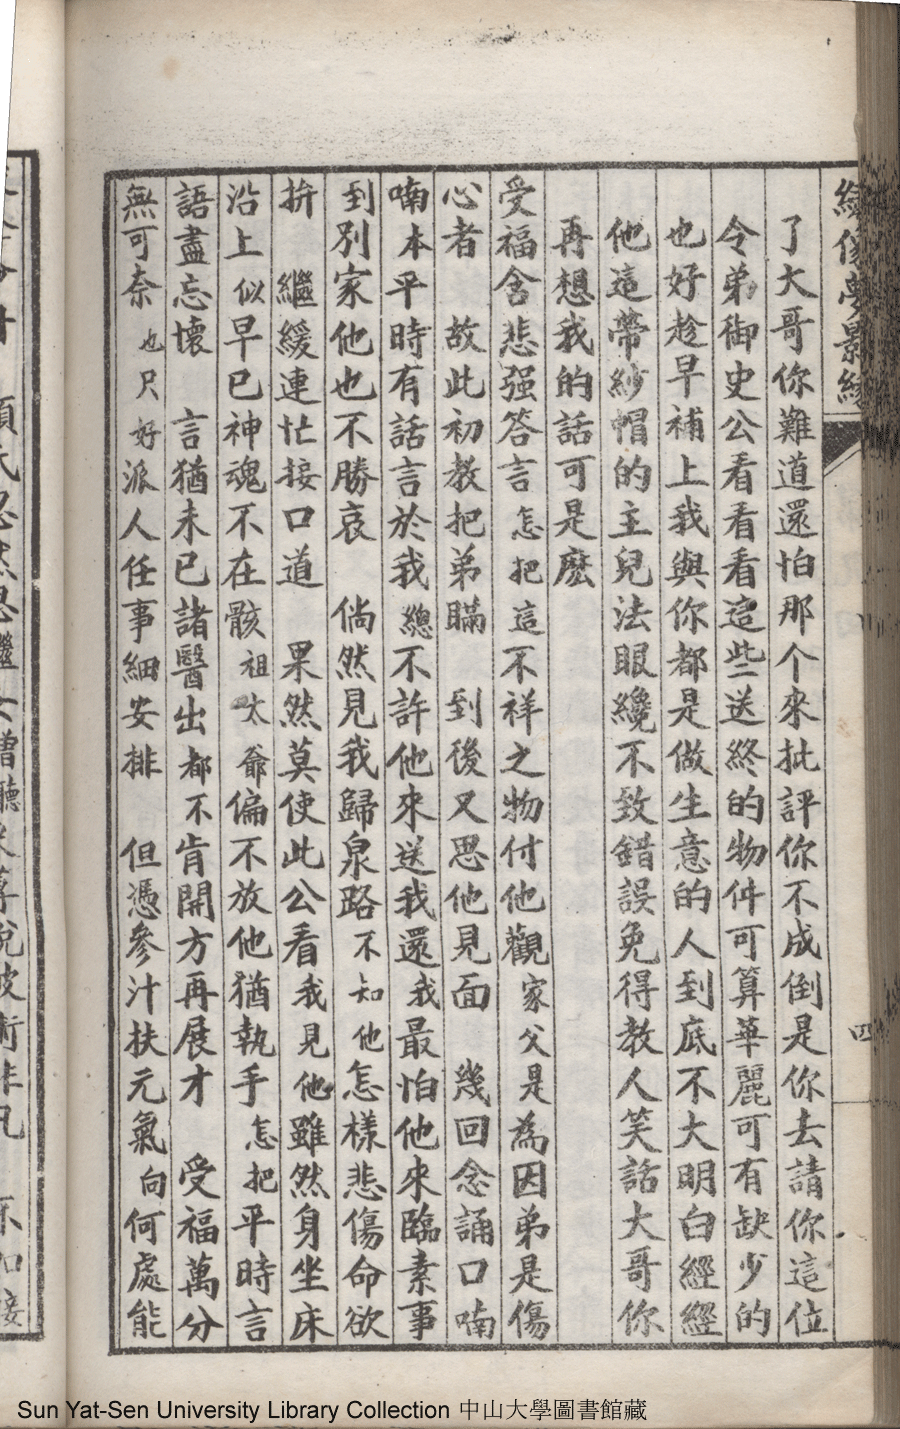 繡像夢影緣
四
了大哥你難道還怕那个來批評你不成倒是你去請你這位
令弟御史公看看看這些送終的物件可算華麗可有缺少的
也好趁早補上我與你都是做生意的人到底不大明白經經
他這帶紗帽的主兒法眼纔不致錯誤免得教人笑話大哥你
再想我的話可是麽
受福含悲强答言怎把這不祥之物付他觀家父是為因弟是傷
心者 故此初教把弟瞞 到後又思他見面 幾回念誦口喃
喃本平時有話言於我總不許他來送我還我最怕他來臨素事
到別家他也不勝哀 倘然見我歸泉路不知他怎樣悲傷命欲
拚 繼緩連忙接口道 果然莫使此公看我見他雖然身坐床
沿上似早已神魂不在骸祖太爺偏不放他猶執手怎把平時言
語盡忘懷 言猶未已諸醫出都不肯開方再展才 受福萬分
無可奈也只好派人任事細安排 但憑參汁扶元氣向何處能